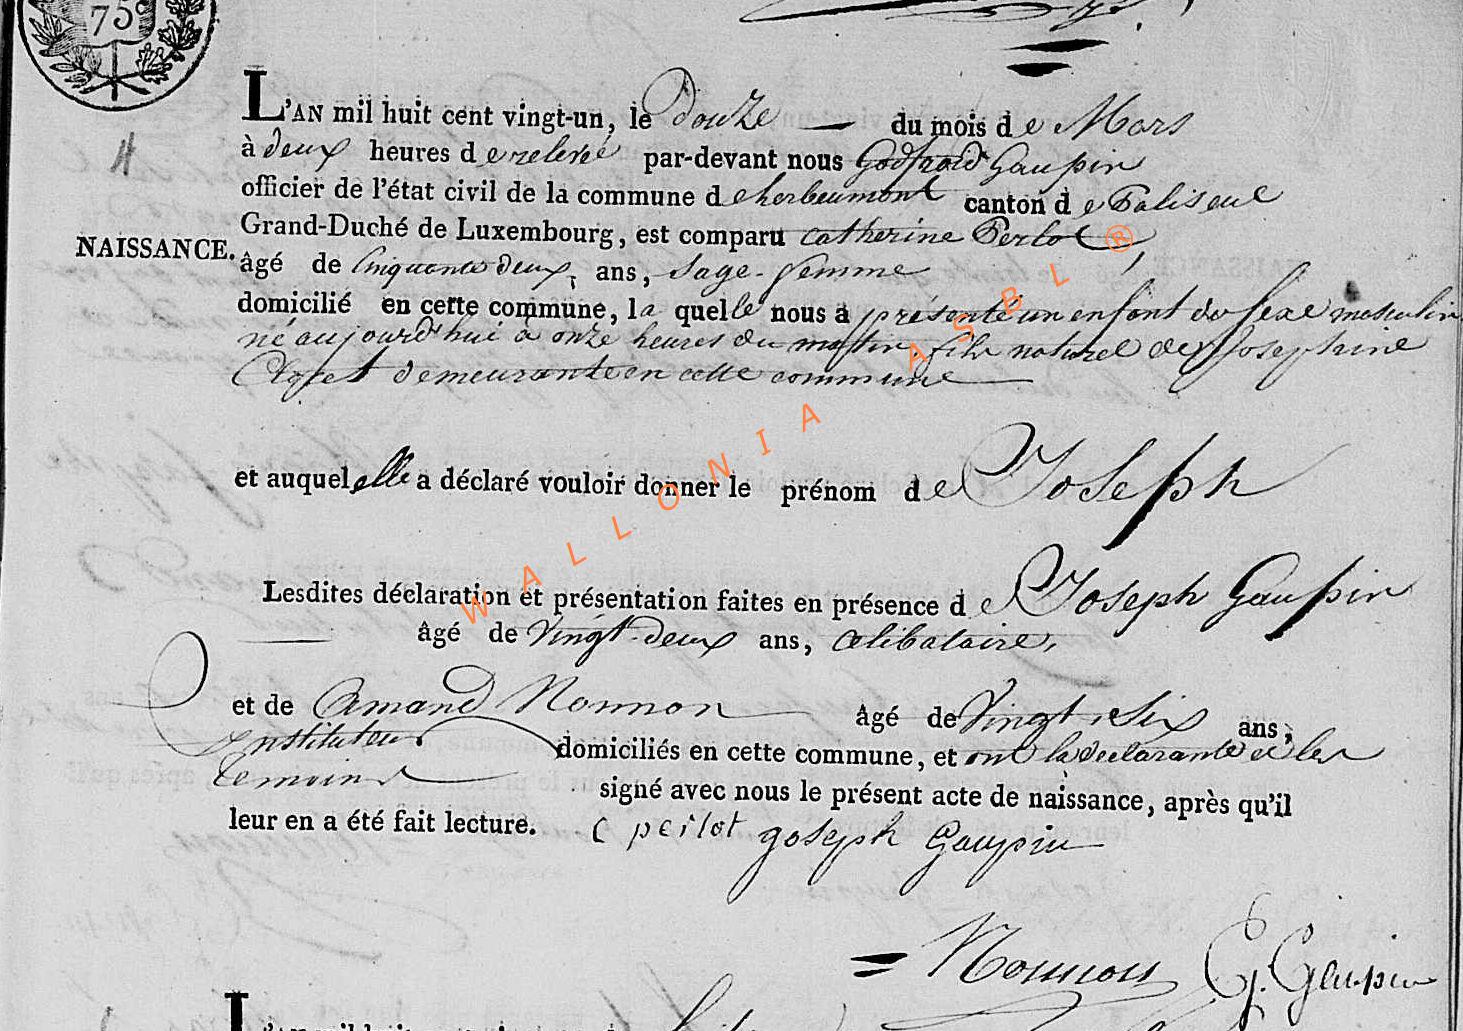 75c
4
L'AN mil huit cent vingt-un, le Douze — du mois de Mars
à deux heures de relevée par-devant nous Godfroid Gaupin
officier de l'état civil de la commune d'herbeumont canton de Paliseul
Grand-Duché de Luxembourg, est comparu catherine Perlot,
NAISSANCE.
âgé de Cinquante deux, ans, Sage-femme
domicilié en cette commune, la quelle nous a présenté un enfant du Sexe masculin
né aujourd'hui à onze heures du matin, fils naturel de Josephine
demeurante en cette commune
et auquel elle a déclaré vouloir donner le prénom de Joseph
Lesdites déclaration et présentation faites en présence de Joseph Gaupin
âgé de Vingt-deux ans, célibataire,
et de Amand Nonnon âgé de Vingt-Six ans,
Instituteur domiciliés en cette commune, et ont la déclarante et les
temoins signé avec nous le présent acte de naissance, après qu'il
leur en a été fait lecture. C perlot Joseph Gaupin
= Nonnon G. Gaupin
WALLONIA ASBL ®